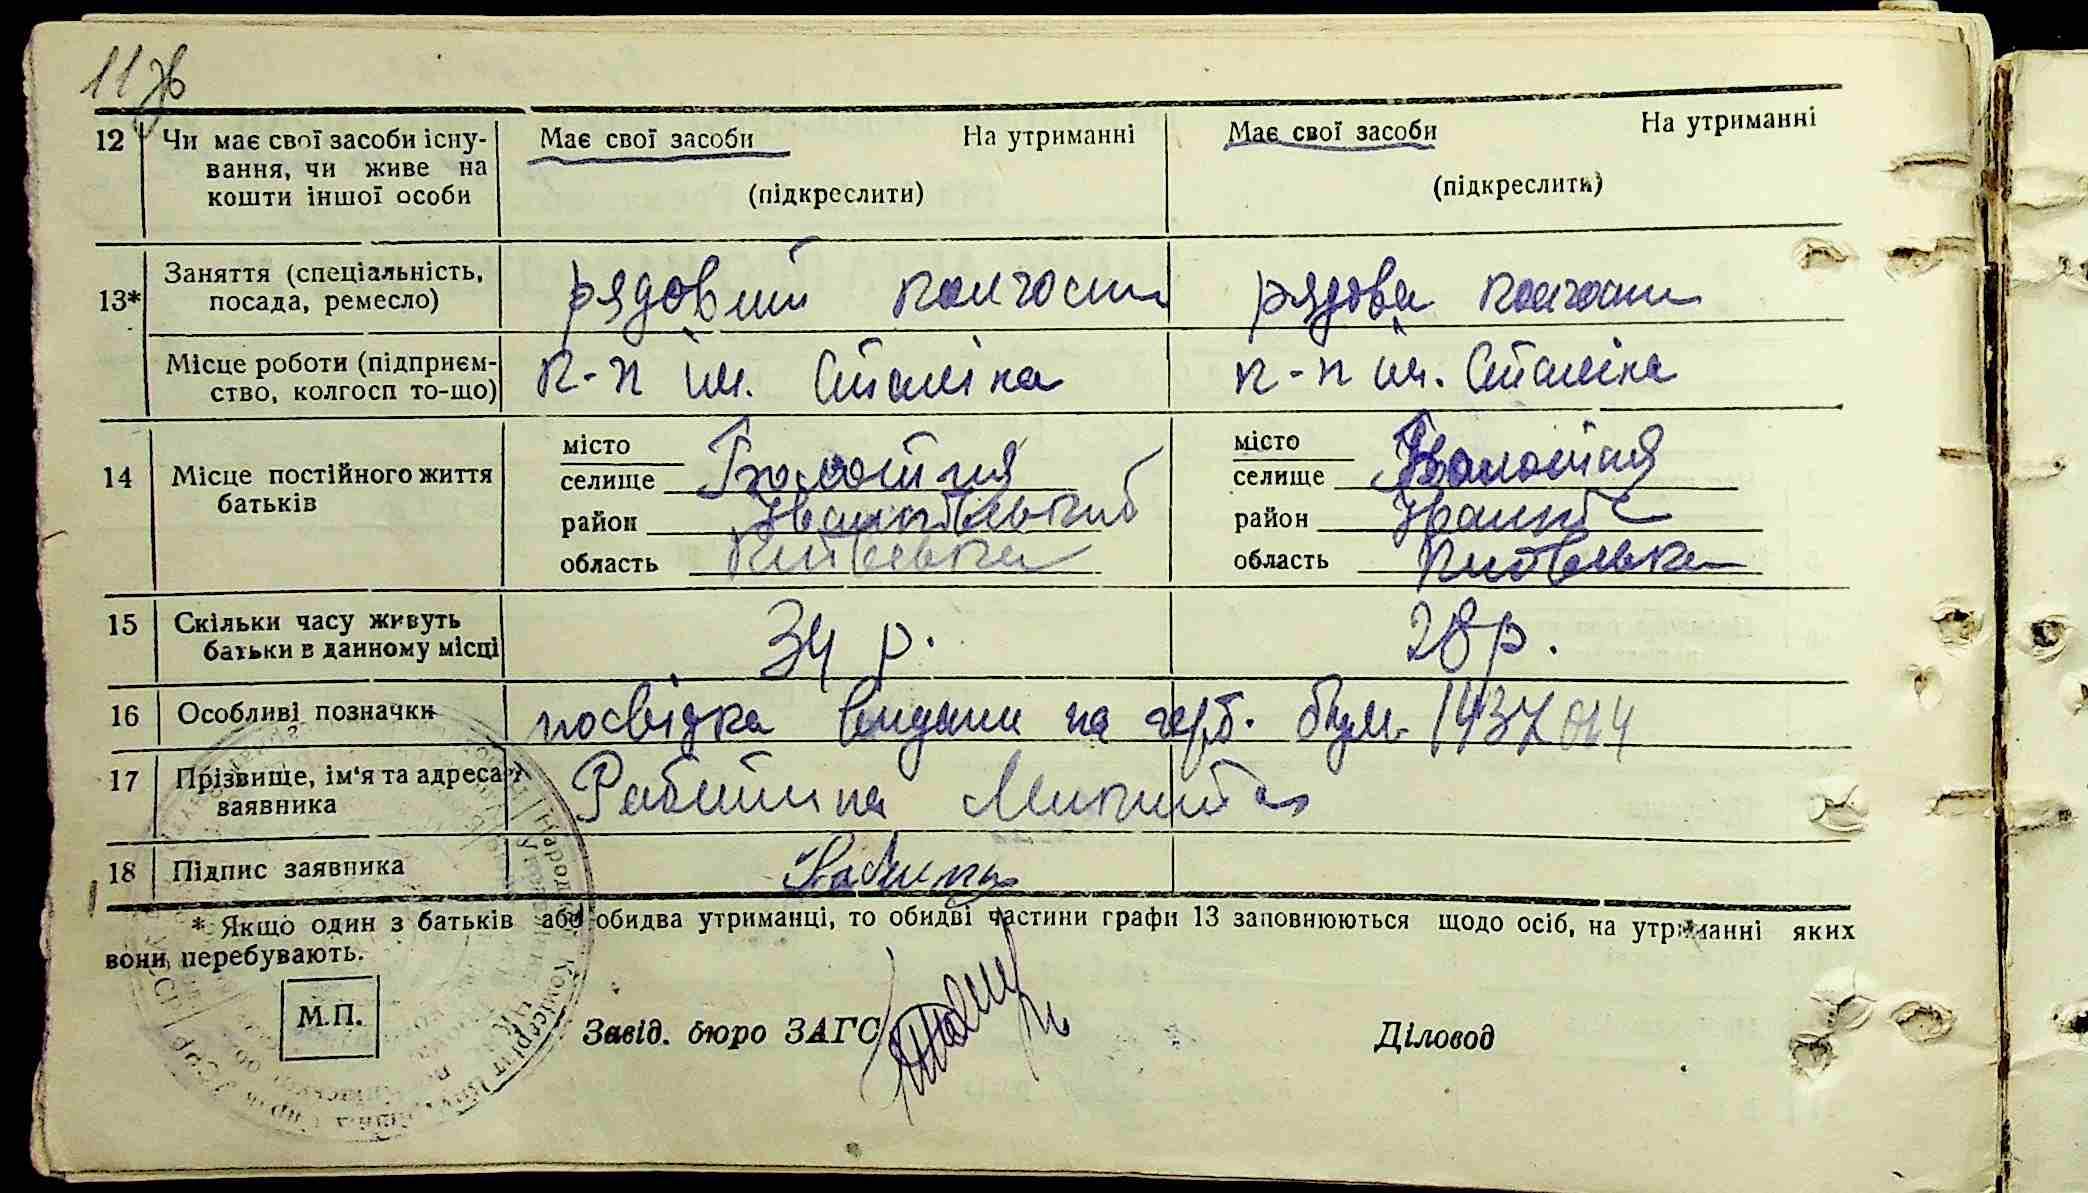 12 Чи має свої засоби існу- Має свої засоби На утриманні Має свої засоби На утриманні
вання, чи живе на
кошти іншої особи (підкреслити) (підкреслити)
13* Заняття (спеціальність, рядовий колгосп рядова колгосп
посада, ремесло)
Місце роботи (підприєм- к-п ім. Сталіна к-п ім. Сталіна
ство, колгосп то-що)
14 Місце постійного життя місто місто
батьків селище Болотня селище Болотня
район Іванківський район Іванків
область Київська область Київська
15 Скільки часу живуть 34 р. 28 р.
батьки в данному місці
16 Особливі позначки посвідка видана на герб. бум. 1437014
17 Прізвище, ім'я та адреса Микита
заявника
18 Підпис заявника
* Якщо один з батьків або обидва утриманці, то обидві частини графи 13 заповнюються щодо осіб, на утриманні яких
вони перебувають.
М.П. Завід. бюро ЗАГС Діловод